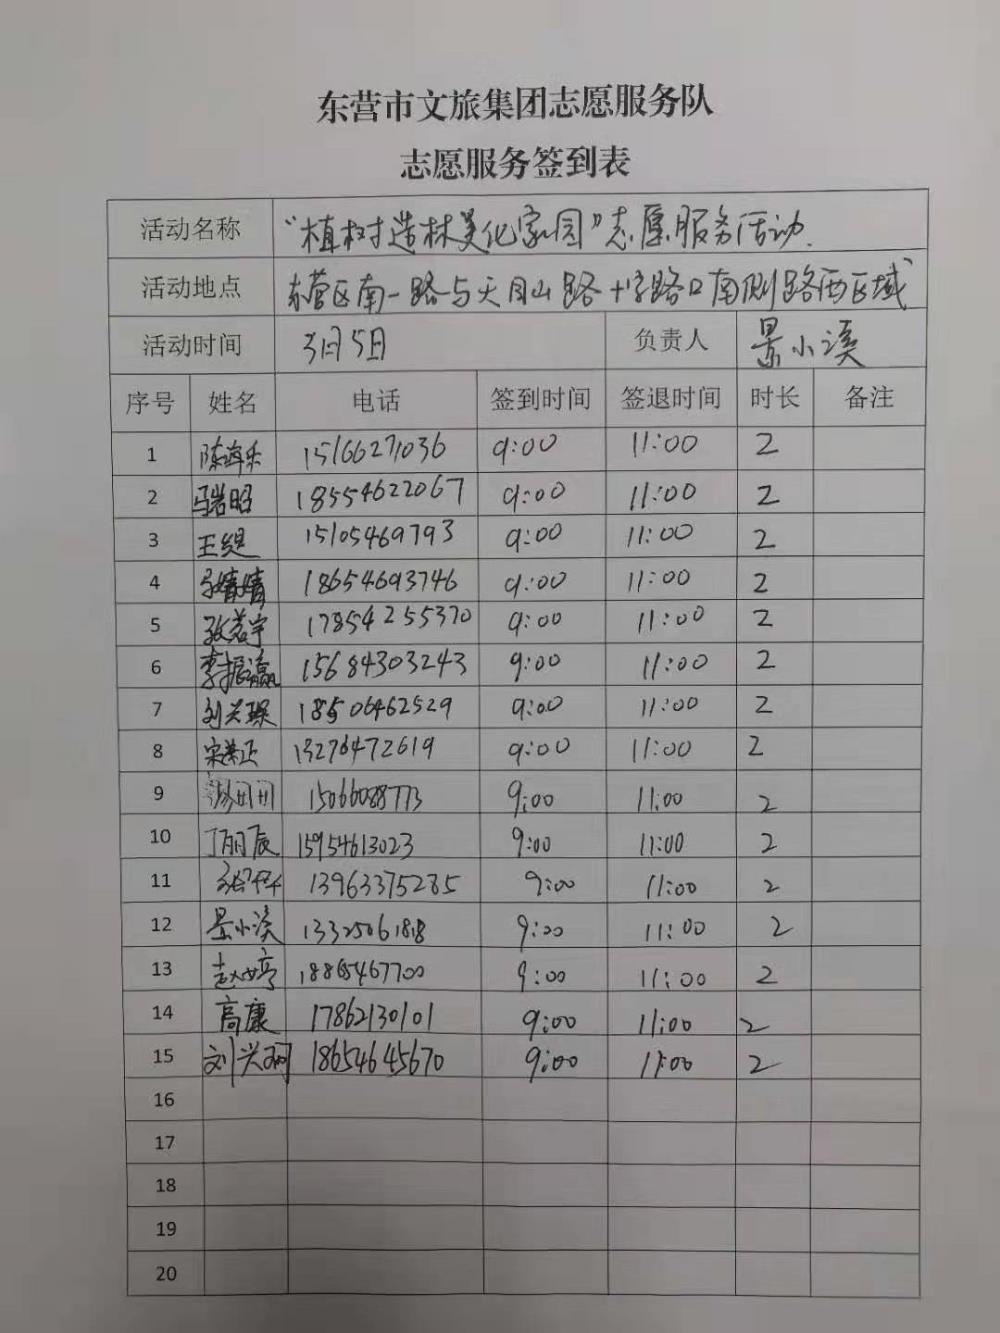 东营市文旅集团志愿服务队
志愿服务签到表
活动名称 “植树造林美化家园”志愿服务活动.
活动地点 东营区南一路与天目山路十字路口南侧路西区域
活动时间 3月5日 负责人 景小溪
序号 姓名 电话 签到时间 签退时间 时长 备注
1 陈海乐 15166271036 9:00 11:00 2
2 马岩昭 18554622067 9:00 11:00 2
3 王缇 15105469793 9:00 11:00 2
4 18654693746 9:00 11:00 2
5 张若宇 17854255370 9:00 11:00 2
6 李振瀛 15684303243 9:00 11:00 2
7 刘兴琛 18506462529 9:00 11:00 2
8 13276472619 9:00 11:00 2
9 15066088773 9:00 11:00 2
10 丁丽辰 15954613023 9:00 11:00 2
11 13963375285 9:00 11:00 2
12 景小溪 13325061818 9:00 11:00 2
13 赵婷 18865467700 9:00 11:00 2
14 高康 17862130101 9:00 11:00 2
15 刘兴 18654645670 9:00 11:00 2
16
17
18
19
20